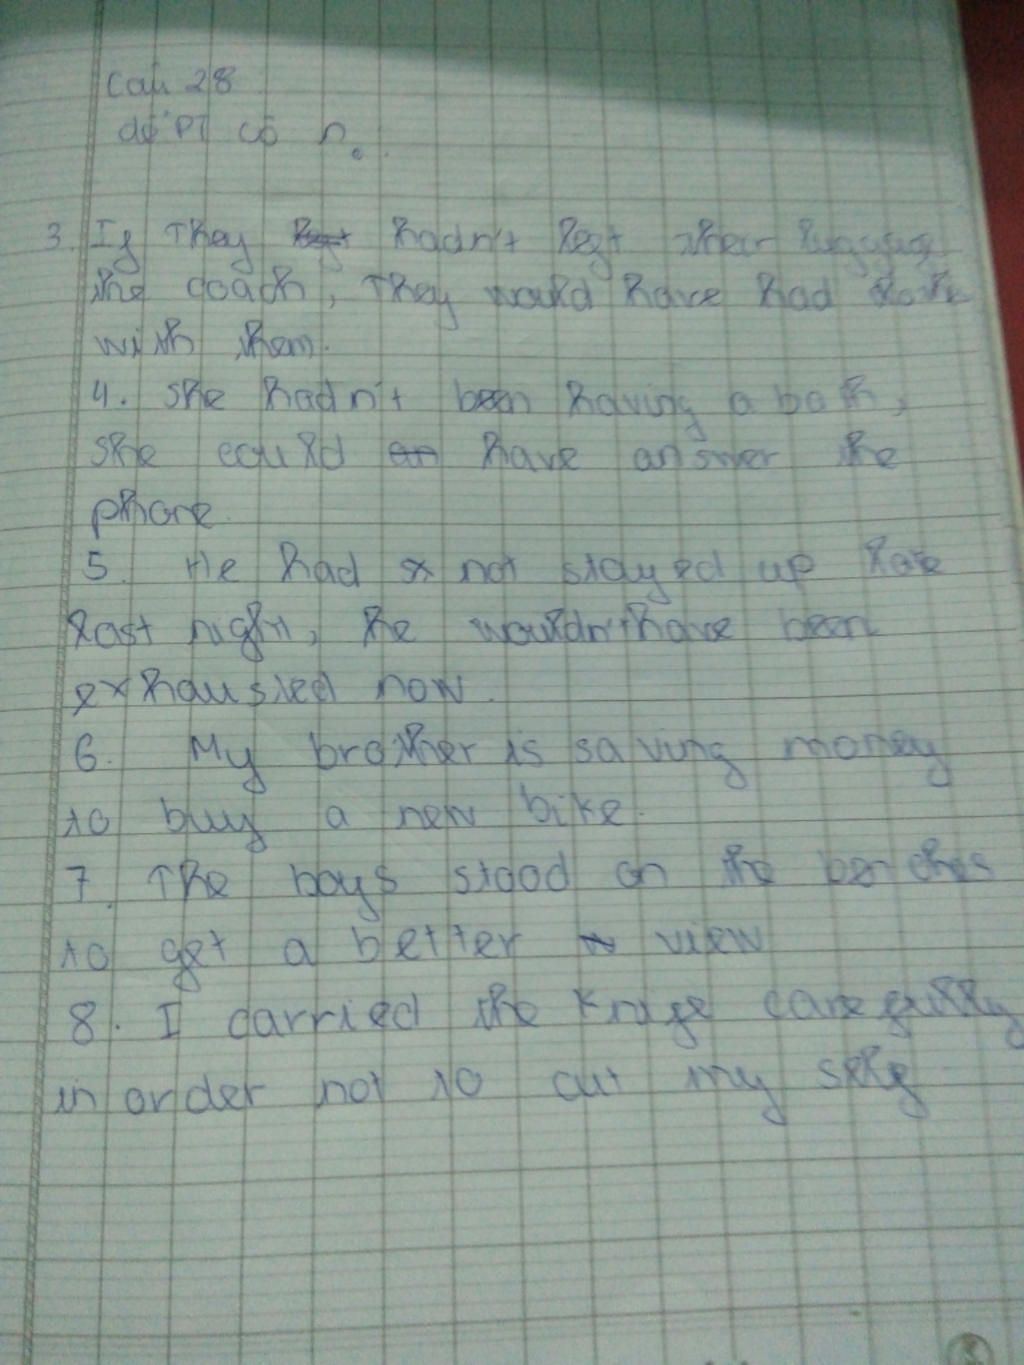 Câu 28
để PT có n.
3. If They hadn't left their luggage
the coach, They would have had
with them.
4. She hadn't been having a bath,
she could have answer the
phone.
5. He had not stayed up late
last night, he wouldn't have been
exhausted now.
6. My brother is saving money
to buy a new bike.
7. The boys stood on the benches
to get a better view
8. I carried the knife carefully
in order not to cut my self